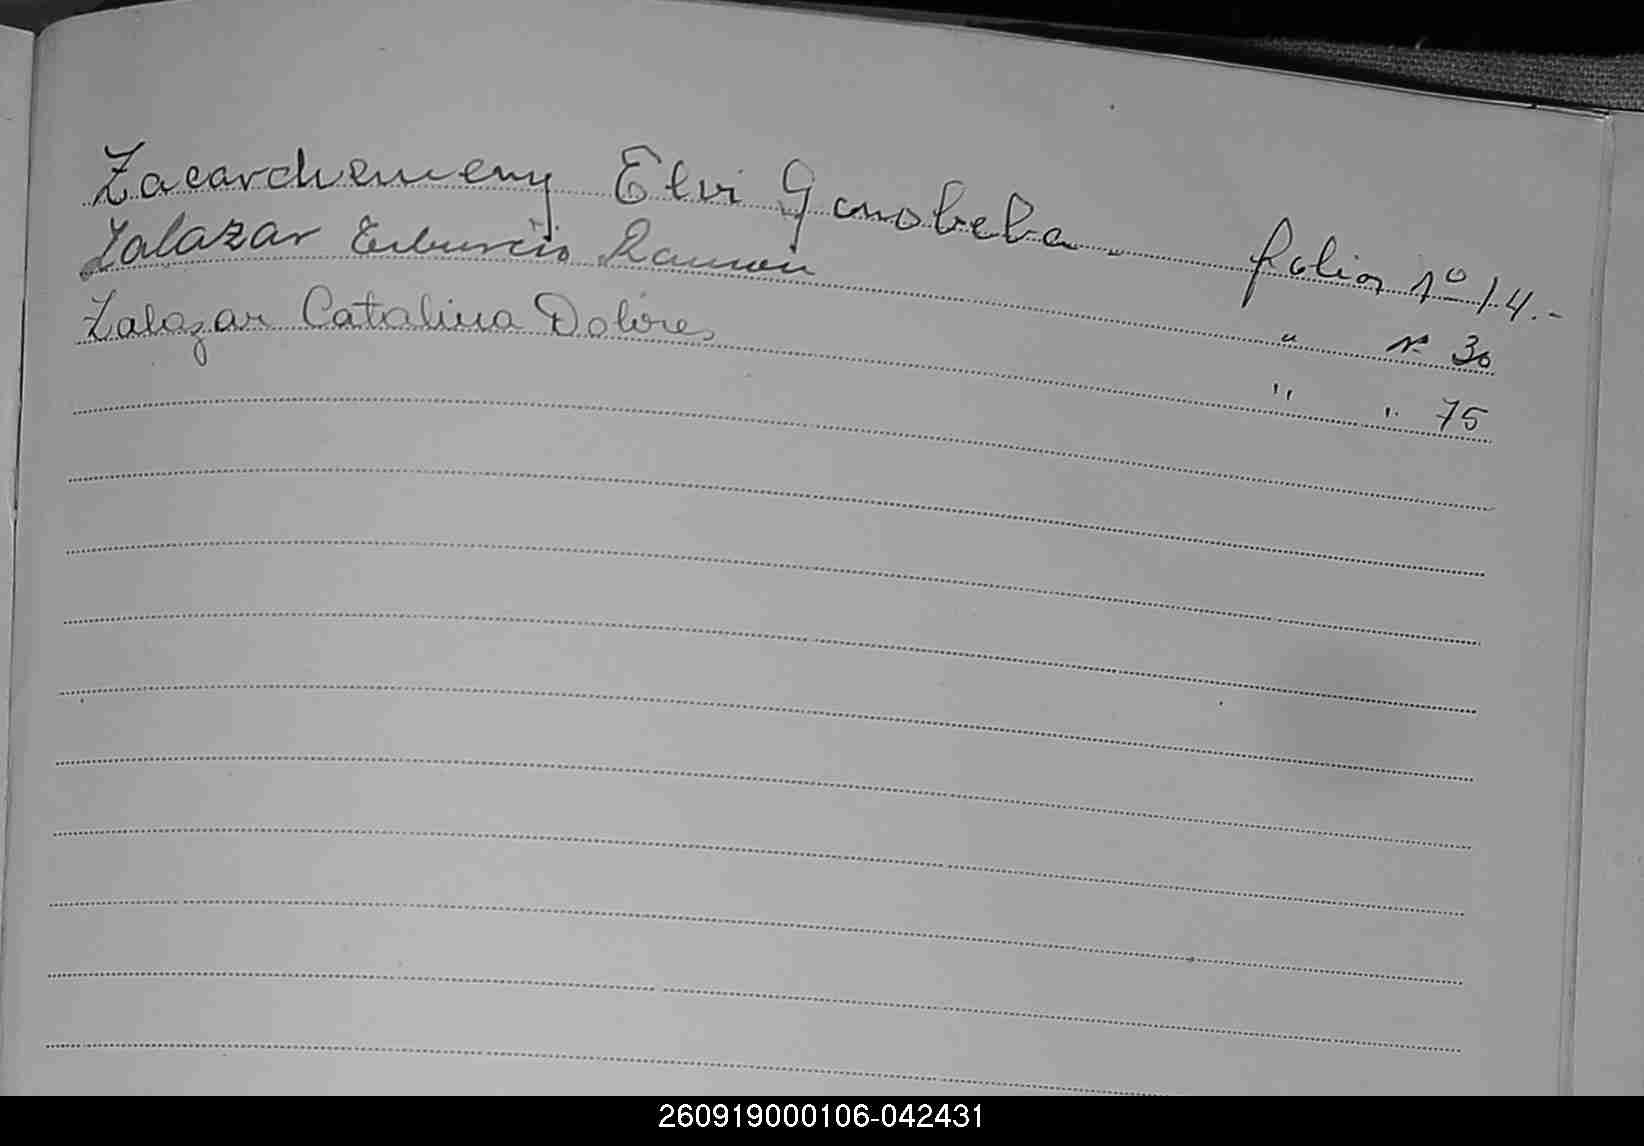 Zacarchemeny Elvi Ganobeba. folios nº 14.-
Zalazar Tiburcio Ramon " nº 30
Zalazar Catalina Dolores " " 75
260919000106-042431